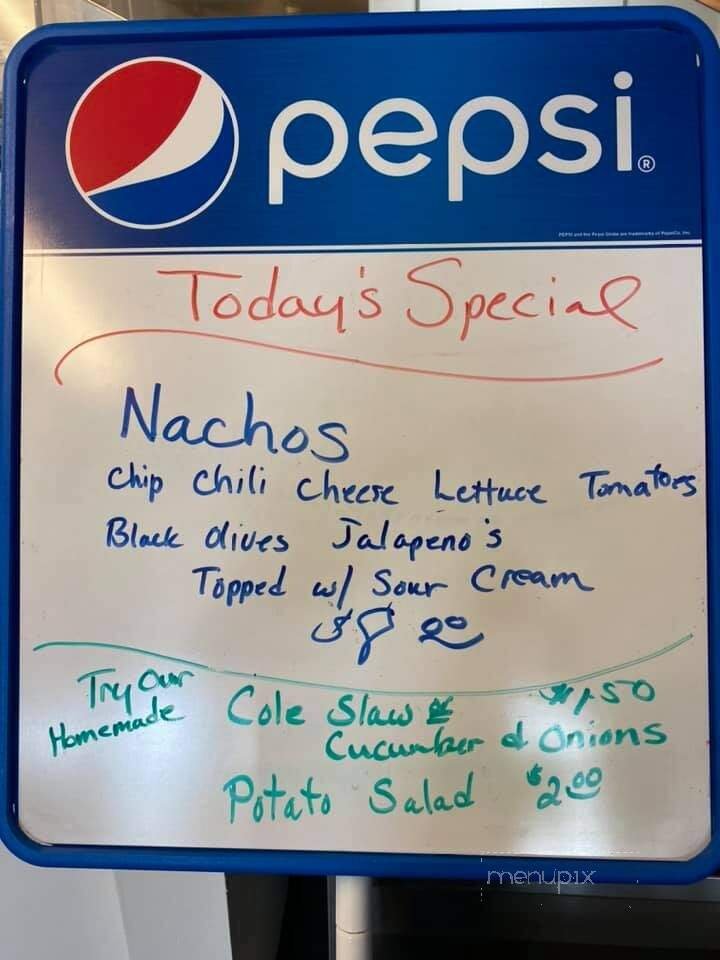 pepsi®
PEPSI and the Pepsi Globe are trademarks of PepsiCo, Inc.
Today's Special
Nachos
Chip Chili Cheese Lettuce Tomatoes
Black Olives Jalapeno's
Topped w/ Sour Cream
$8 00
Try Our
Homemade
Cole Slaw & $1,50
Cucumber & Onions
Potato Salad $2 00
menupix